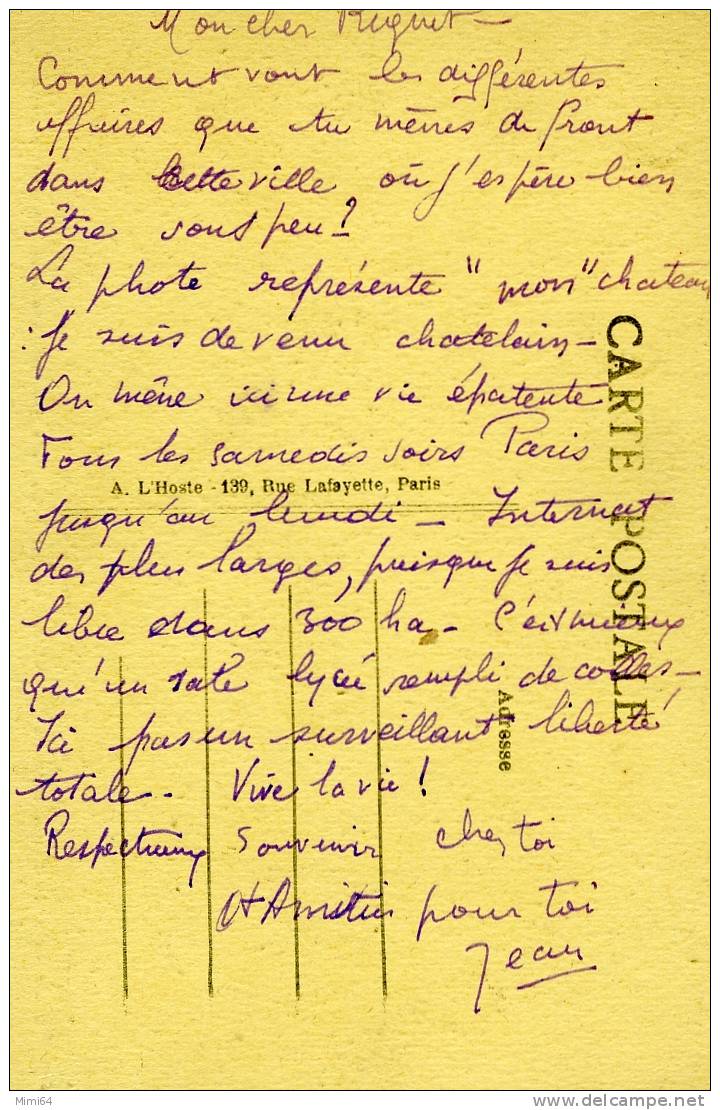 Mon cher Riquet -
Comment vont les différentes
affaires que tu mènes de front
dans cette ville où j'espère bien
être sous peu ?
La photo représente "mon" chateau
: Je suis devenu chatelain -
On mène ici une vie épatente
Tous les samedis soirs Paris
A. L'Hoste - 139, Rue Lafayette, Paris
jusqu'au lundi - Internat
des plus larges, puisque je suis
libre dans 300 ha - C'est mieux
qu'un sale lycée rempli de colles -
Ici pas un surveillant liberté
totale - Vive la vie !
Respectueux souvenir chez toi
et Amitiés pour toi
Jean
CARTE POSTALE
Adresse
Mimi64
delcampe.net